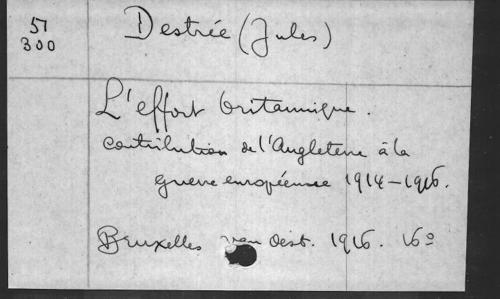 51
300
Destrée (Jules)
L'effort britannique.
Contribution de l'Angleterre à la
guerre européenne 1914-1916.
Bruxelles van Oest. 1916. 16º